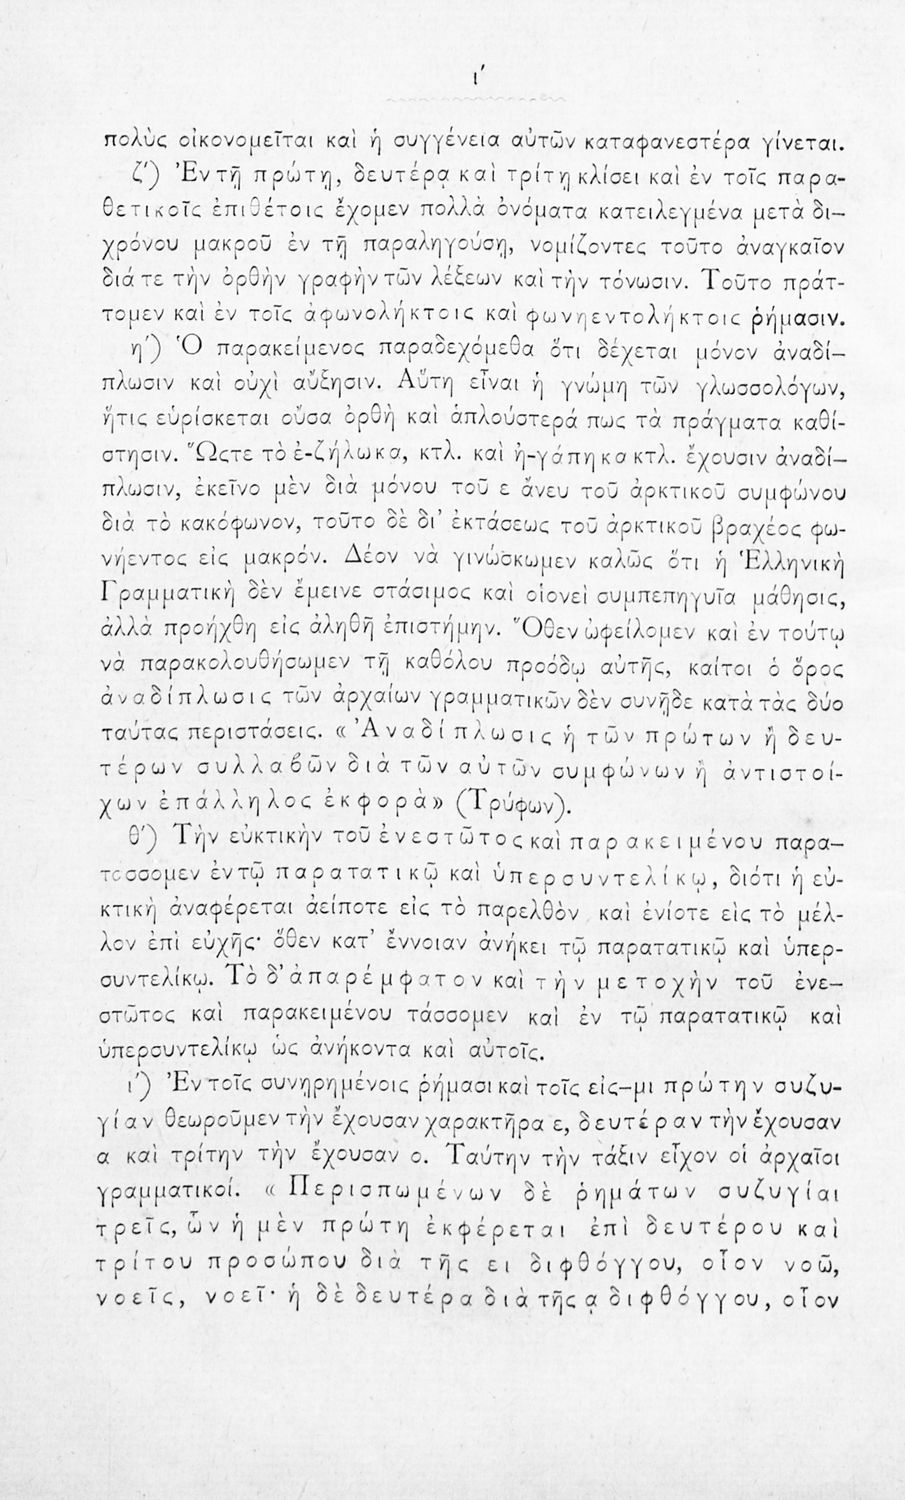 ι′
πολὺς οἰκονομεῖται καὶ ἡ συγγένεια αὐτῶν καταφανεστέρα γίνεται.
ζ′) Ἐν τῇ πρώτῃ, δευτέρᾳ καὶ τρίτῃ κλίσει καὶ ἐν τοῖς παρα-
θετικοῖς ἐπιθέτοις ἔχομεν πολλὰ ὀνόματα κατειλεγμένα μετὰ δι-
χρόνου μακροῦ ἐν τῇ παραληγούσῃ, νομίζοντες τοῦτο ἀναγκαῖον
διά τε τὴν ὀρθὴν γραφὴν τῶν λέξεων καὶ τὴν τόνωσιν. Τοῦτο πράτ-
τομεν καὶ ἐν τοῖς ἀφωνολήκτοις καὶ φωνηεντολήκτοις ῥήμασιν.
η′) Ὁ παρακείμενος παραδεχόμεθα ὅτι δέχεται μόνον ἀναδί-
πλωσιν καὶ οὐχὶ αὔξησιν. Αὕτη εἶναι ἡ γνώμη τῶν γλωσσολόγων,
ἥτις εὑρίσκεται οὖσα ὀρθὴ καὶ ἁπλούστερά πως τὰ πράγματα καθί-
στησιν. Ὥςτε τὸ ἐ-ζήλωκα, κτλ. καὶ ἠ-γάπηκα κτλ. ἔχουσιν ἀναδί-
πλωσιν, ἐκεῖνο μὲν διὰ μόνου τοῦ ε ἄνευ τοῦ ἀρκτικοῦ συμφώνου
διὰ τὸ κακόφωνον, τοῦτο δὲ δι’ ἐκτάσεως τοῦ ἀρκτικοῦ βραχέος φω-
νήεντος εἰς μακρόν. Δέον νὰ γινώσκωμεν καλῶς ὅτι ἡ Ἑλληνικὴ
Γραμματικὴ δὲν ἔμεινε στάσιμος καὶ οἱονεὶ συμπεπηγυῖα μάθησις,
ἀλλὰ προήχθη εἰς ἀληθῆ ἐπιστήμην. Ὅθεν ὠφείλομεν καὶ ἐν τούτῳ
νὰ παρακολουθήσωμεν τῇ καθόλου προόδῳ αὐτῆς, καίτοι ὁ ὅρος
ἀναδίπλωσις τῶν ἀρχαίων γραμματικῶν δὲν συνῇδε κατὰ τὰς δύο
ταύτας περιστάσεις. «Ἀναδίπλωσις ἡ τῶν πρώτων ἢ δευ-
τέρων συλλαβῶν διὰ τῶν αὐτῶν συμφώνων ἢ ἀντιστοί-
χων ἐπάλληλος ἐκφορὰ» (Τρύφων).
θ′) Τὴν εὐκτικὴν τοῦ ἐνεστῶτος καὶ παρακειμένου παρα-
τάσσομεν ἐν τῷ παρατατικῷ καὶ ὑπερσυντελίκῳ, διότι ἡ εὐ-
κτικὴ ἀναφέρεται ἀείποτε εἰς τὸ παρελθὸν καὶ ἐνίοτε εἰς τὸ μέλ-
λον ἐπὶ εὐχῆς· ὅθεν κατ’ ἔννοιαν ἀνήκει τῷ παρατατικῷ καὶ ὑπερ-
συντελίκῳ. Τὸ δ’ ἀπαρέμφατον καὶ τὴν μετοχὴν τοῦ ἐνε-
στῶτος καὶ παρακειμένου τάσσομεν καὶ ἐν τῷ παρατατικῷ καὶ
ὑπερσυντελίκῳ ὡς ἀνήκοντα καὶ αὐτοῖς.
ι′) Ἐν τοῖς συνῃρημένοις ῥήμασι καὶ τοῖς εἰς-μι πρώτην συζυ-
γίαν θεωροῦμεν τὴν ἔχουσαν χαρακτῆρα ε, δευτέραν τὴν ἔχουσαν
α καὶ τρίτην τὴν ἔχουσαν ο. Ταύτην τὴν τάξιν εἶχον οἱ ἀρχαῖοι
γραμματικοί. «Περισπωμένων δὲ ῥημάτων συζυγίαι
τρεῖς, ὧν ἡ μὲν πρώτη ἐκφέρεται ἐπὶ δευτέρου καὶ
τρίτου προσώπου διὰ τῆς ει διφθόγγου, οἷον νοῶ,
νοεῖς, νοεῖ· ἡ δὲ δευτέρα διὰ τῆς ᾳ διφθόγγου, οἷον